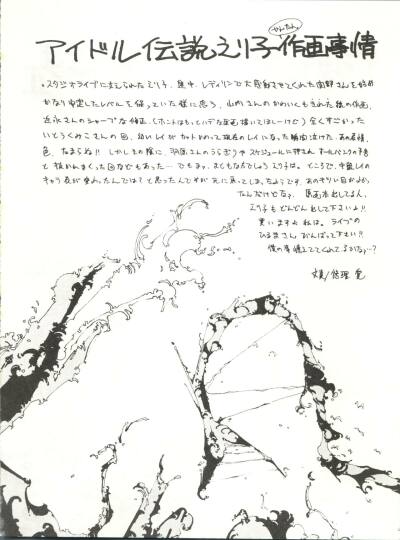 かんたん
アイドル伝説えり子作画事情
。スタジオライブに支えられたえり子、集中、レディリンで大感動させてくれた南野さんを始め
かなり安定したレベルを保っていた様に思う、山内さんのかわいくもきれいな絵の作画、
近永さんのシャープな修正、(ホントはもっとハデな原画描いてほしーけど) 全くすごかった
いとうくみこさんの回、幼いレイがカットかわって現在のレイになった瞬間泣けた、あの表情、
色、たまらん!! しかしその陰に、羽原さんのうらぎりやスケジュールに押され、オールバンクの予告
と抜かれまくった回などもあった… でもまァ、まともなんでしょうえり子は。ところで、中盤レイの
キャラ表が変わったんでは?と思ったんですが元に戻ってしまったようです、あのキツい目がよかっ
たんだけどなァ 原画本出してるん、
えり子もどんどん出して下さいよ!!
買いますよ私は。ライブの
ひるまさん がんばって下さい!!
僕の事憶えててくれてるかな…?
文責/悠理 愛